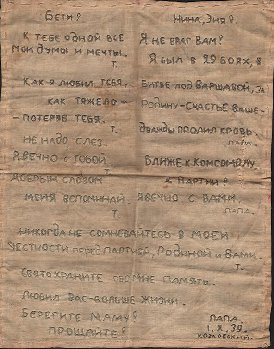 Бети!
К тебе одной все
мои думы и мечты.
Т.
Как я любил тебя,
как тяжело
потеряв тебя.
Т.
Не надо слез.
Я вечно с тобой.
Т.
Добрым словом
меня вспоминай.
Нина, Эня!
Я не враг вам!
Я был в 29 боях, в
битве под Варшавой, за
Родину-счастье ваше
дважды пролил кровь.
папа.
Ближе к комсомолу,
к партии!
Я вечно с вами.
папа.
Никогда не сомневайтесь в моей
честности перед партией, Родиной и вами.
Т.
Свято храните обо мне память.
Любил вас больше жизни.
Берегите маму!
Прощайте!
папа.
1.X.39.